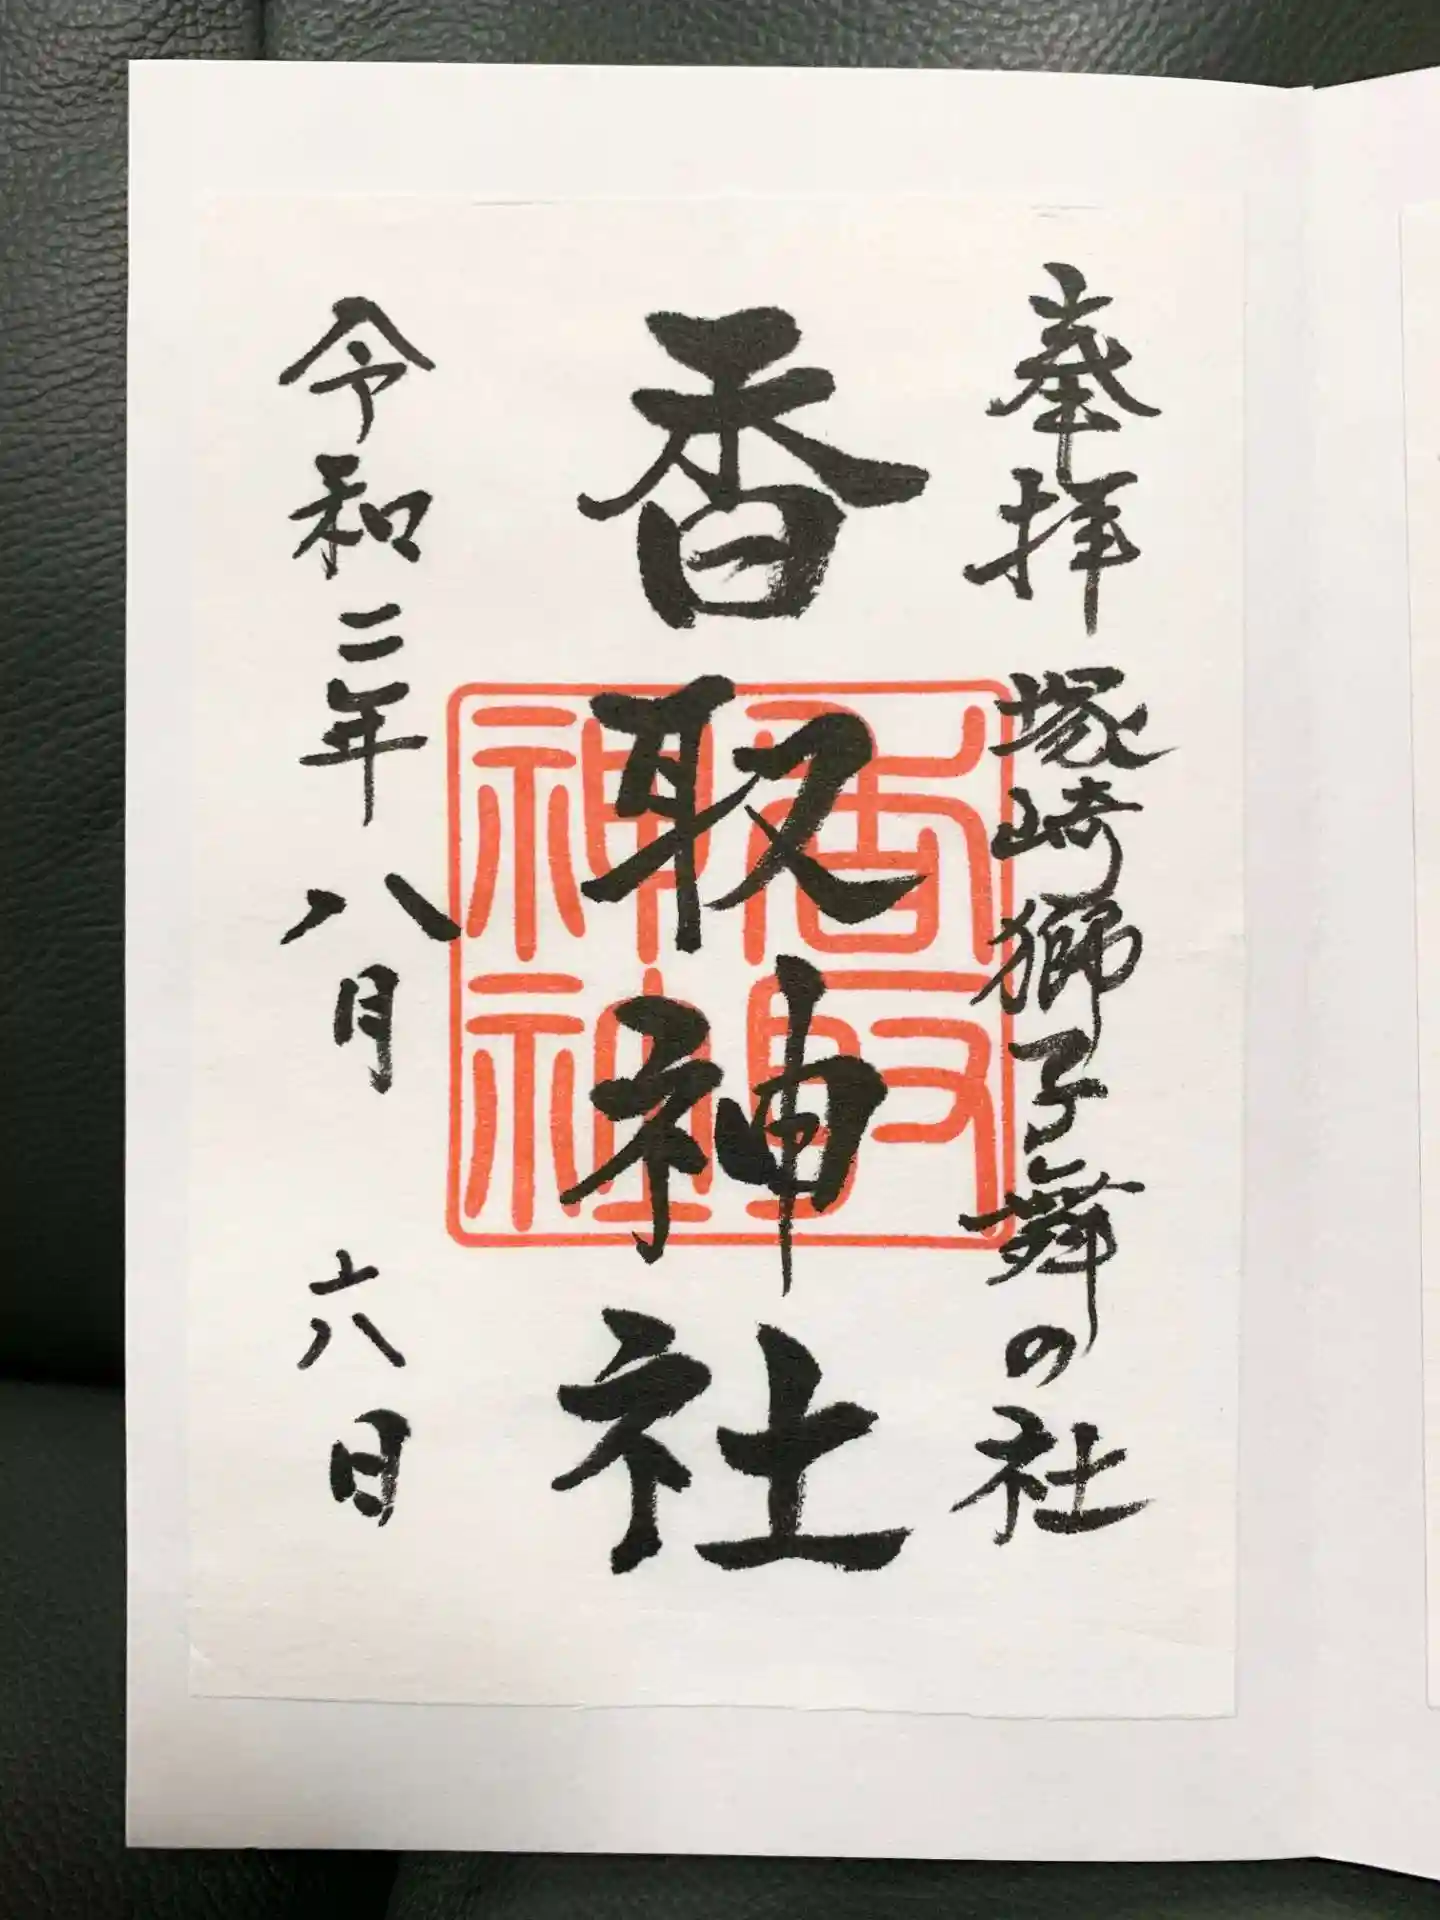 奉拝 塚崎獅子舞の社
香取神社
令和二年八月六日
香取
神社